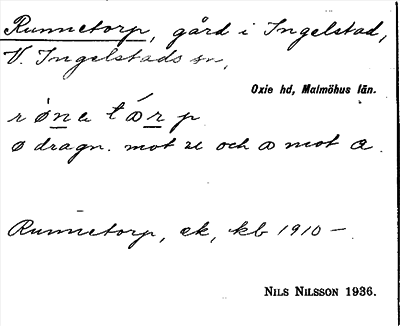 Runnetorp, gård i Ingelstad,
V. Ingelstads sn,
Oxie hd, Malmöhus län.
rønatårp
ø dragn. mot æ och a mot a.
Runnetorp, ek, kb 1910 –
NILS NILSSON 1936.